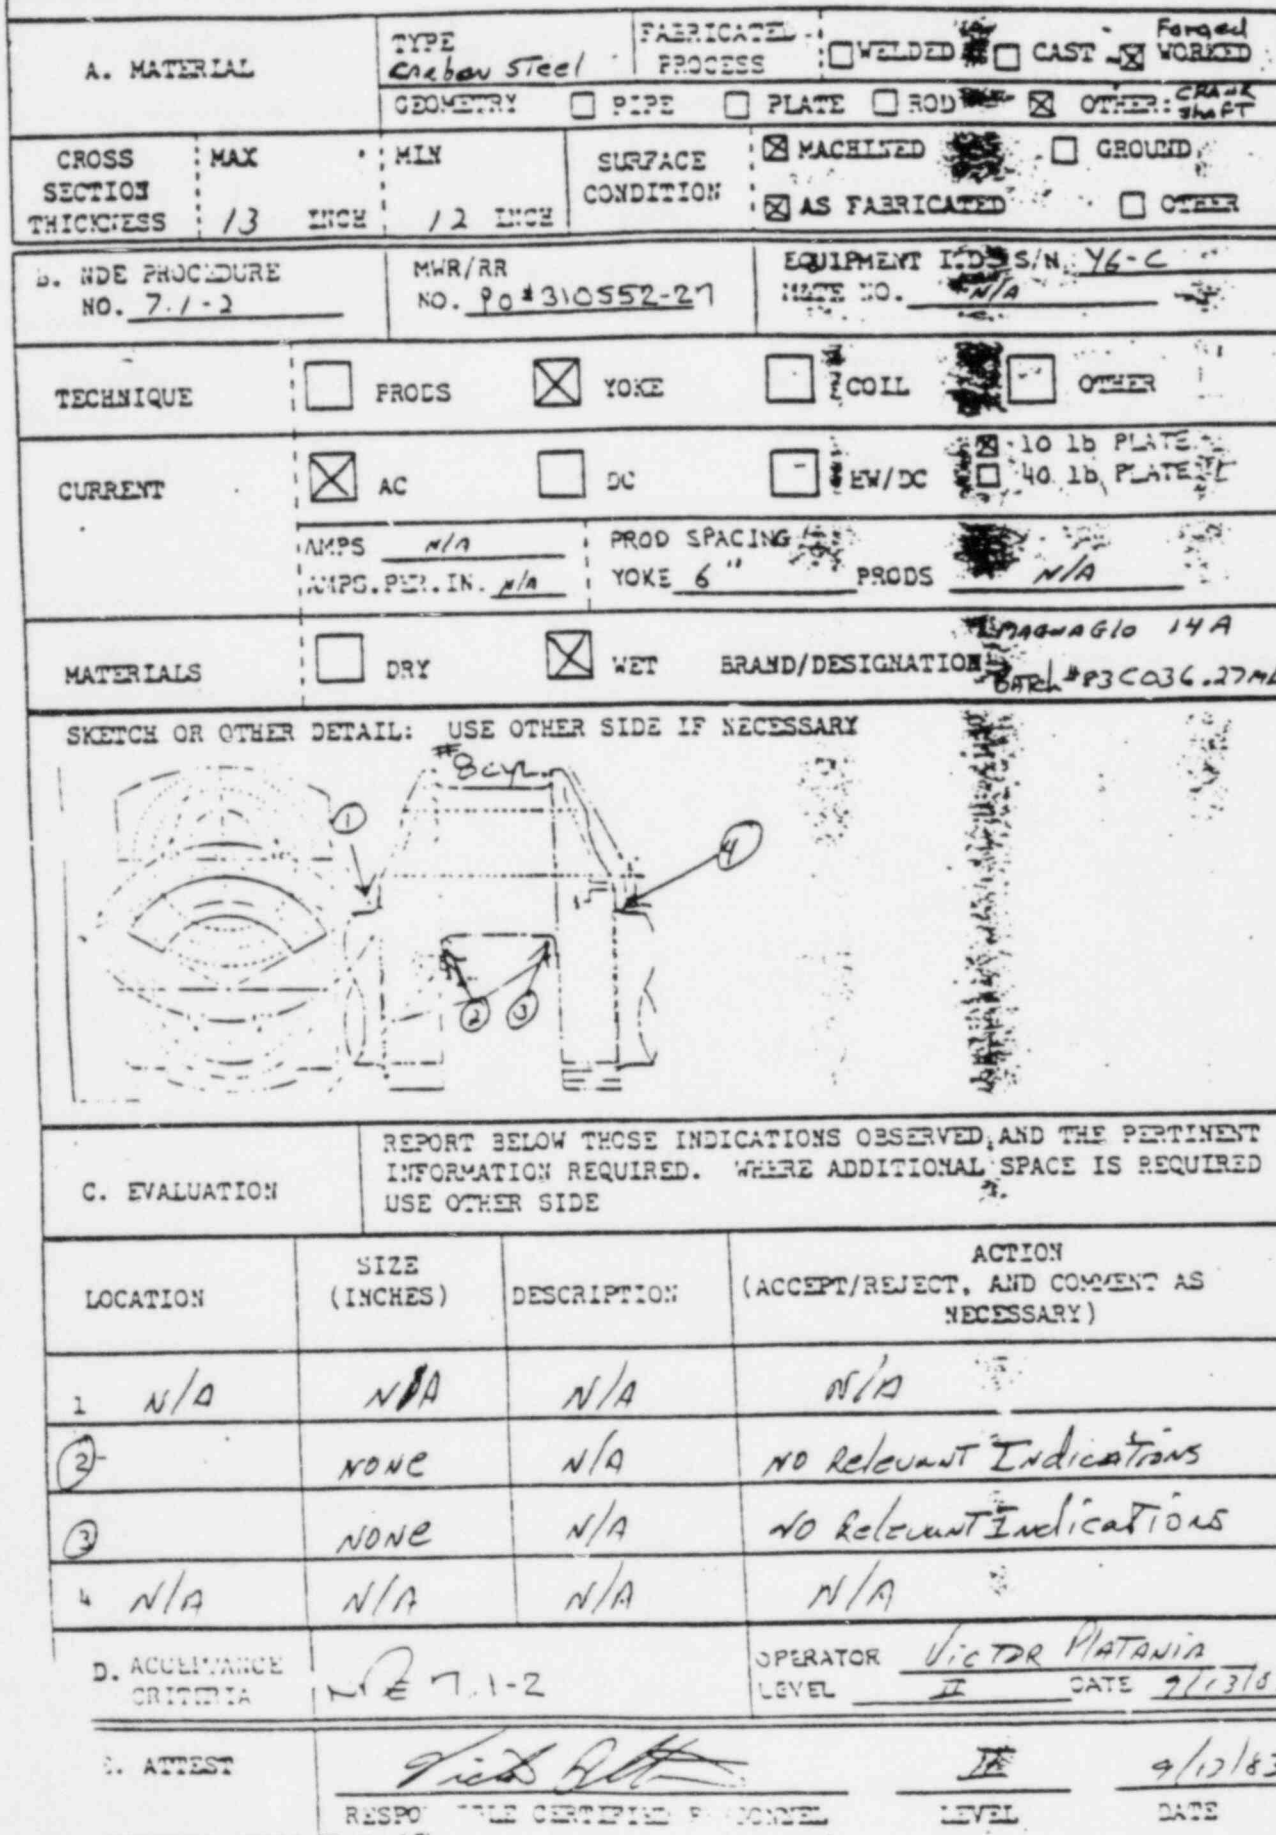 A. MATERIAL
TYPE
Carbon Steel
FABRICATED
PROCESS
☐ WELDED ☐ CAST ☒ Forged WORKED
GEOMETRY ☐ PIPE ☐ PLATE ☐ ROD ☒ OTHER: CRANK Shaft
CROSS SECTION THICKNESS
MAX
13 INCH
MIN
12 INCH
SURFACE CONDITION
☒ MACHINED ☐ GROUND
☒ AS FABRICATED ☐ OTHER
B. NDE PROCEDURE
NO. 7.1-2
MWR/RR
NO. PO#310552-27
EQUIPMENT I.D. S/N Y6-C
NO. N/A
TECHNIQUE ☐ PRODS ☒ YOKE ☐ COIL ☐ OTHER
CURRENT ☒ AC ☐ DC ☐ HW/DC
☒ 10 lb PLATE
☐ 40 lb PLATE
AMPS N/A
AMPS.PER.IN. N/A
PROD SPACING
YOKE 6" PRODS N/A
MATERIALS ☐ DRY ☒ WET BRAND/DESIGNATION
MAGNAGlo 14A
BATCh #83C036.27ML
SKETCH OR OTHER DETAIL: USE OTHER SIDE IF NECESSARY
#8 cyl.
1
4
2 3
C. EVALUATION
REPORT BELOW THOSE INDICATIONS OBSERVED, AND THE PERTINENT
INFORMATION REQUIRED. WHERE ADDITIONAL SPACE IS REQUIRED
USE OTHER SIDE
LOCATION
SIZE
(INCHES)
DESCRIPTION
ACTION
(ACCEPT/REJECT, AND COMMENT AS
NECESSARY)
1 N/A N/A N/A N/A
2 NONE N/A NO Relevant Indications
3 NONE N/A NO Relevant Indications
4 N/A N/A N/A N/A
D. ACCEPTANCE
CRITERIA
NDE 7.1-2
OPERATOR Victor PlATANIA
LEVEL II DATE 9/13/8
E. ATTEST
II
9/13/83
RESPONSIBLE CERTIFIED PERSONNEL LEVEL DATE